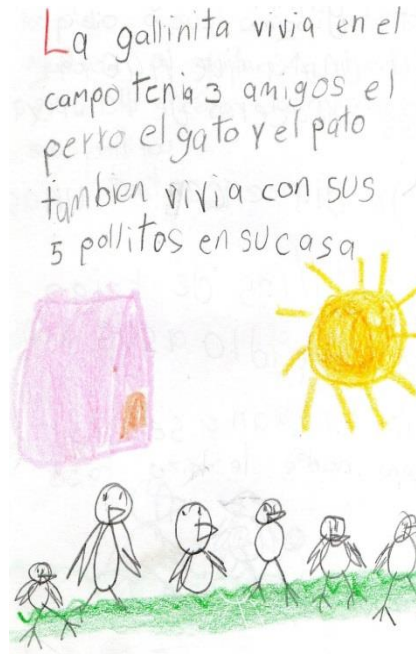 La gallinita vivia en el
campo tenia 3 amigos el
perro el gato y el pato
tambien vivia con sus
5 pollitos en su casa